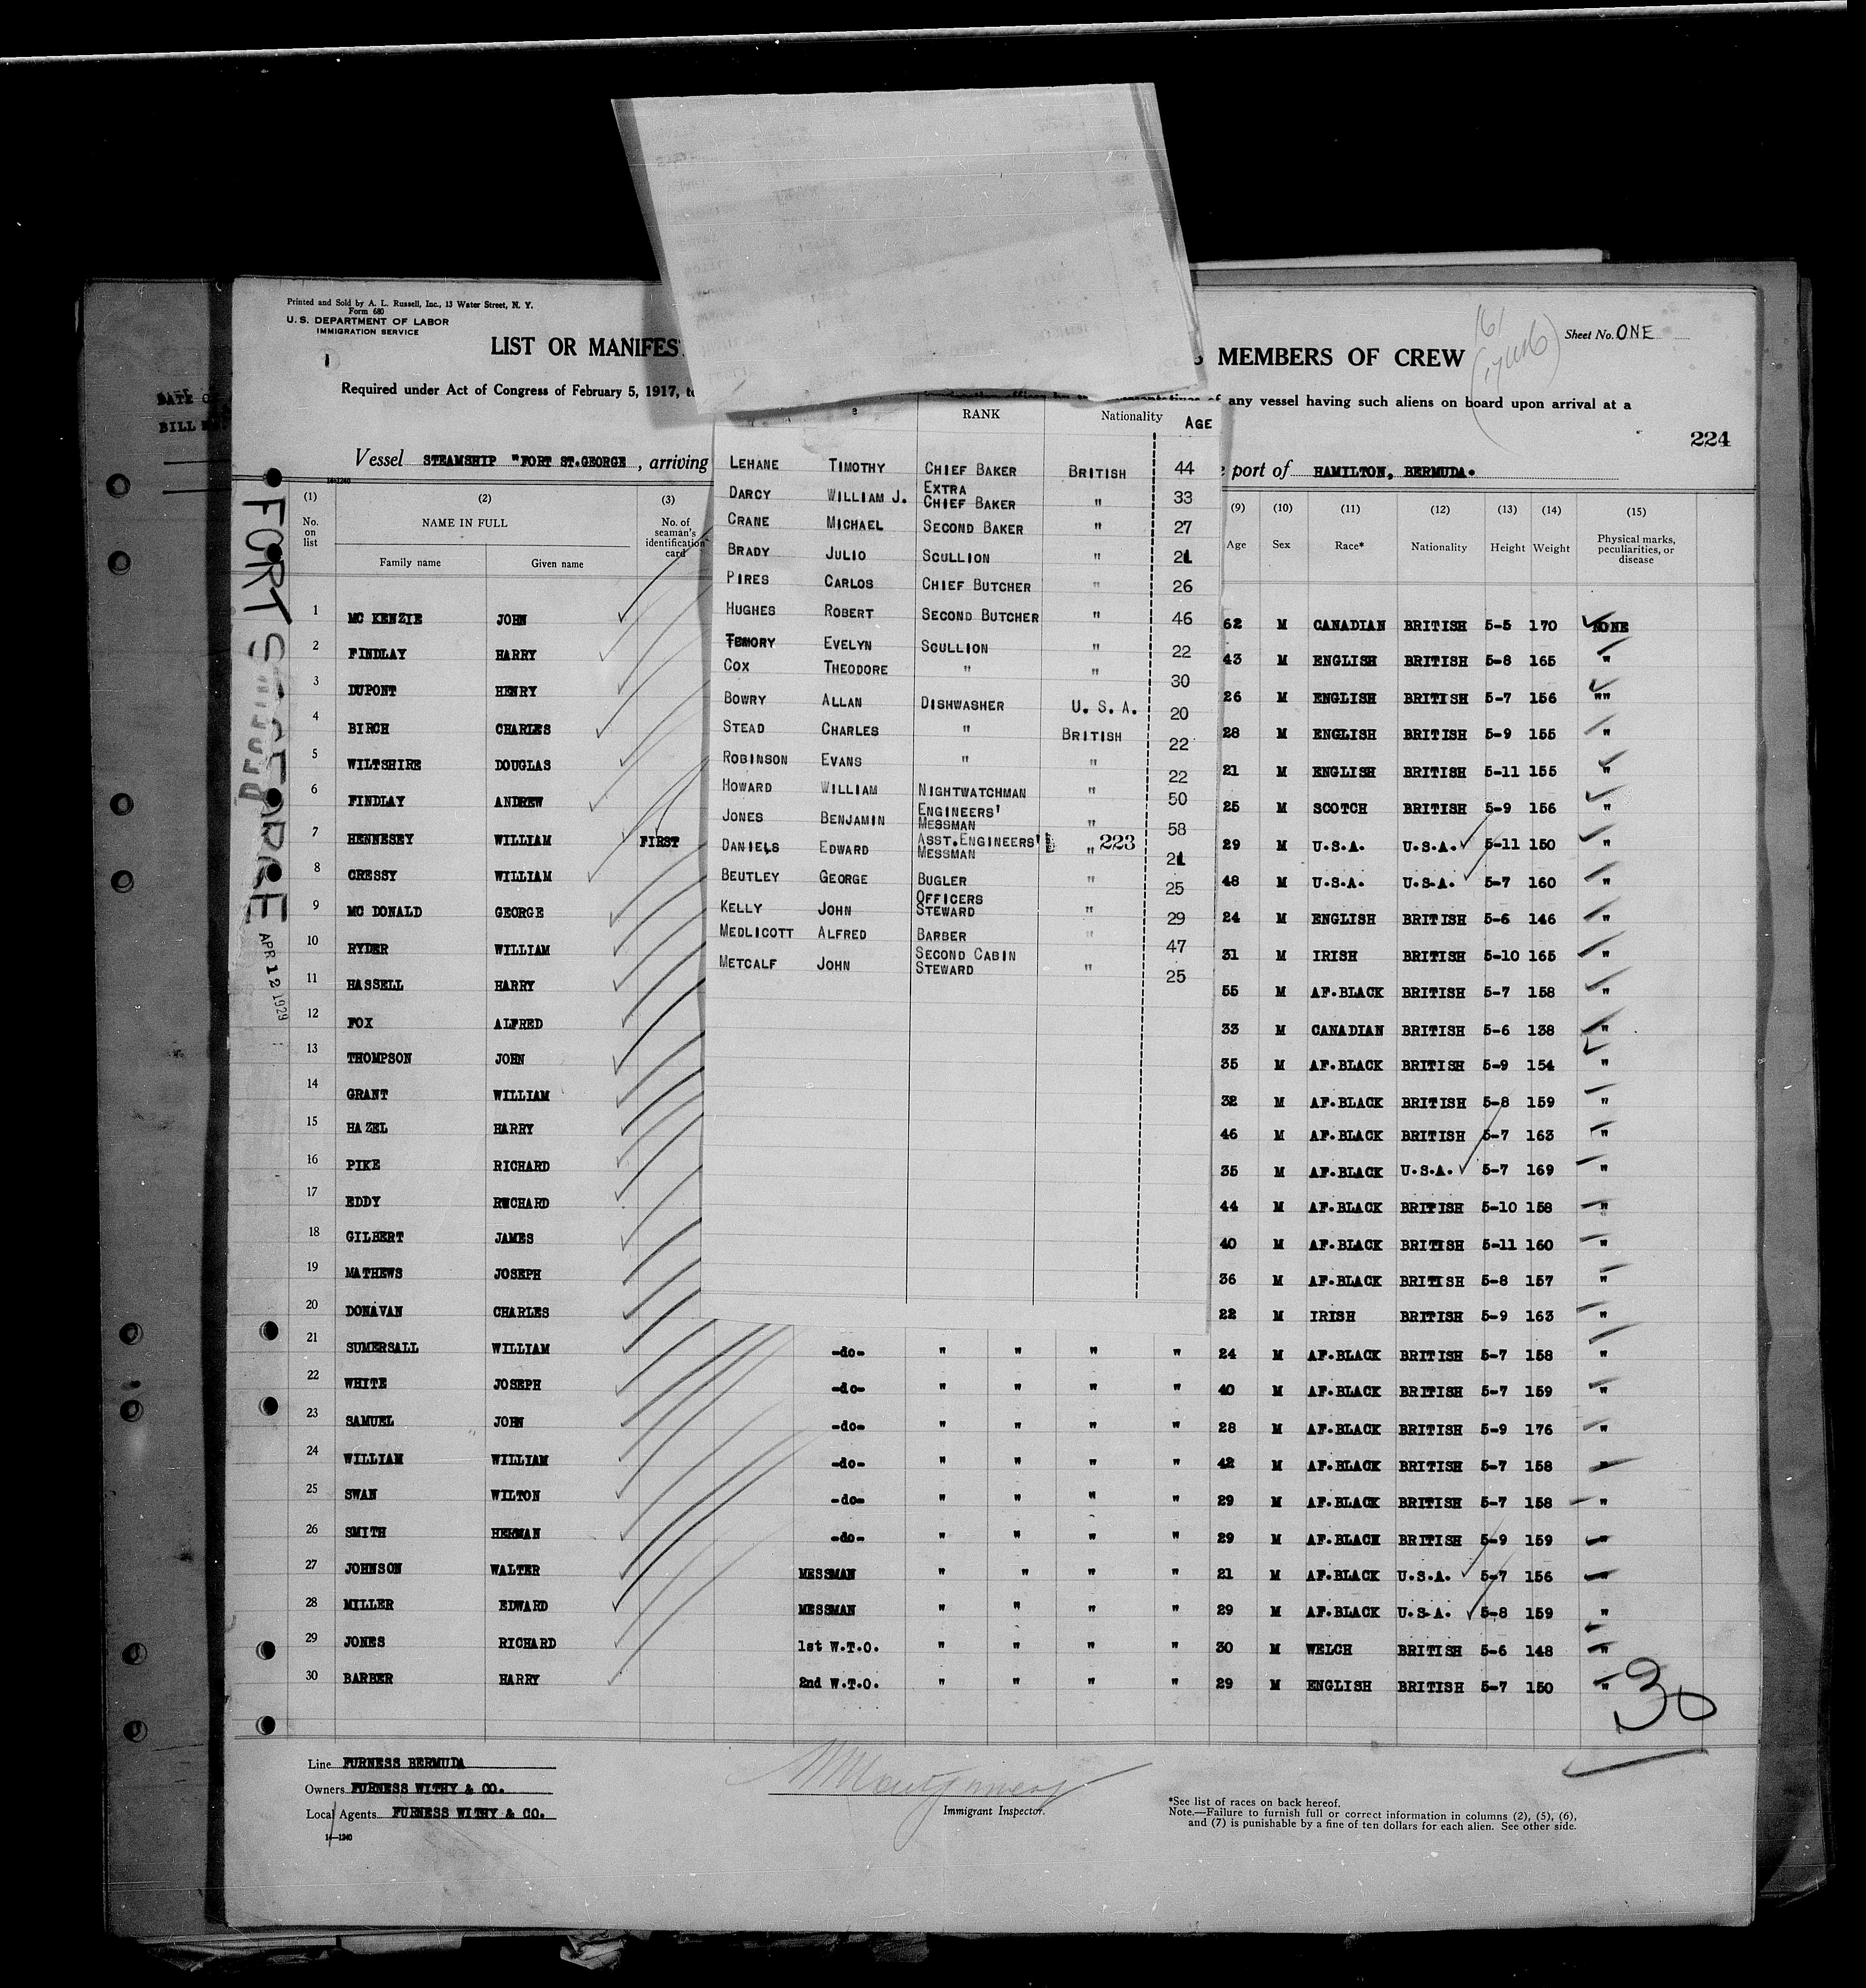 Printed and Sold by A. L. Russell, Inc., 13 Water Street, N. Y.
Form 680
U. S. DEPARTMENT OF LABOR
IMMIGRATION SERVICE
1
LIST OR MANIFES
MEMBERS OF CREW
Sheet No. ONE
161
Required under Act of Congress of February 5, 1917, to
of any vessel having such aliens on board upon arrival at a
224
Vessel STEAMSHIP "FORT ST.GEORGE , arriving
port of HAMILTON, BERMUDA.
14-1240
BILL
FORT ST GEORGE
APR 12 1929
RANK Nationality AGE
LEHANE TIMOTHY CHIEF BAKER BRITISH 44
DARCY WILLIAM J. EXTRA CHIEF BAKER " 33
CRANE MICHAEL SECOND BAKER " 27
BRADY JULIO SCULLION " 21
PIRES CARLOS CHIEF BUTCHER " 26
HUGHES ROBERT SECOND BUTCHER " 46
TEMORY EVELYN SCULLION " 22
COX THEODORE " " 30
BOWRY ALLAN DISHWASHER U. S. A. 20
STEAD CHARLES " BRITISH 22
ROBINSON EVANS " " 22
HOWARD WILLIAM NIGHTWATCHMAN " 50
JONES BENJAMIN ENGINEERS' MESSMAN " 58
DANIELS EDWARD ASST.ENGINEERS' MESSMAN " 223 21
BEUTLEY GEORGE BUGLER " 25
KELLY JOHN OFFICERS STEWARD " 29
MEDLICOTT ALFRED BARBER " 47
METCALF JOHN SECOND CABIN STEWARD " 25
(1) (2) (3) (9) (10) (11) (12) (13) (14) (15)
No. on list NAME IN FULL No. of seaman's identification card Age Sex Race* Nationality Height Weight Physical marks, peculiarities, or disease
Family name Given name
1 MC KENZIE JOHN 62 M CANADIAN BRITISH 5-5 170 NONE
2 FINDLAY HARRY 43 M ENGLISH BRITISH 5-8 165 "
3 DUPONT HENRY 26 M ENGLISH BRITISH 5-7 156 ""
4 BIRCH CHARLES 28 M ENGLISH BRITISH 5-9 155 "
5 WILTSHIRE DOUGLAS 21 M ENGLISH BRITISH 5-11 155 "
6 FINDLAY ANDREW 25 M SCOTCH BRITISH 5-9 156 "
7 HENNESEY WILLIAM FIRST 29 M U.S.A. U.S.A. 5-11 150 "
8 CRESSY WILLIAM 48 M U.S.A. U.S.A. 5-7 160 "
9 MC DONALD GEORGE 24 M ENGLISH BRITISH 5-6 146 "
10 RYDER WILLIAM 31 M IRISH BRITISH 5-10 165 "
11 HASSELL HARRY 55 M AF.BLACK BRITISH 5-7 158 "
12 FOX ALFRED 33 M CANADIAN BRITISH 5-6 138 "
13 THOMPSON JOHN 35 M AF.BLACK BRITISH 5-9 154 "
14 GRANT WILLIAM 32 M AF.BLACK BRITISH 5-8 159 "
15 HAZEL HARRY 46 M AF.BLACK BRITISH 5-7 163 "
16 PIKE RICHARD 35 M AF.BLACK U.S.A. 5-7 169 "
17 EDDY RICHARD 44 M AF.BLACK BRITISH 5-10 158 "
18 GILBERT JAMES 40 M AF.BLACK BRITISH 5-11 160 "
19 MATHEWS JOSEPH 36 M AF.BLACK BRITISH 5-8 157 "
20 DONAVAN CHARLES 22 M IRISH BRITISH 5-9 163 "
21 SUMERSALL WILLIAM -do- " " " " 24 M AF.BLACK BRITISH 5-7 158 "
22 WHITE JOSEPH -do- " " " " 40 M AF.BLACK BRITISH 5-7 159 "
23 SAMUEL JOHN -do- " " " " 28 M AF.BLACK BRITISH 5-9 176 "
24 WILLIAM WILLIAM -do- " " " " 42 M AF.BLACK BRITISH 5-7 158 "
25 SWAN WILTON -do- " " " " 29 M AF.BLACK BRITISH 5-7 158 "
26 SMITH HERMAN -do- " " " " 29 M AF.BLACK BRITISH 5-9 159 "
27 JOHNSON WALTER MESSMAN " " " " 21 M AF.BLACK U.S.A. 5-7 156 "
28 MILLER EDWARD MESSMAN " " " " 29 M AF.BLACK U.S.A. 5-8 159 "
29 JONES RICHARD 1st W.T.O. " " " " 30 M WELCH BRITISH 5-6 148 "
30 BARBER HARRY 2nd W.T.O. " " " " 29 M ENGLISH BRITISH 5-7 150 "
30
Line FURNESS BERMUDA
Owners FURNESS WITHY & CO.
Local Agents FURNESS WITHY & CO.
14-1240
Montgomery
Immigrant Inspector.
*See list of races on back hereof.
Note.—Failure to furnish full or correct information in columns (2), (5), (6),
and (7) is punishable by a fine of ten dollars for each alien. See other side.